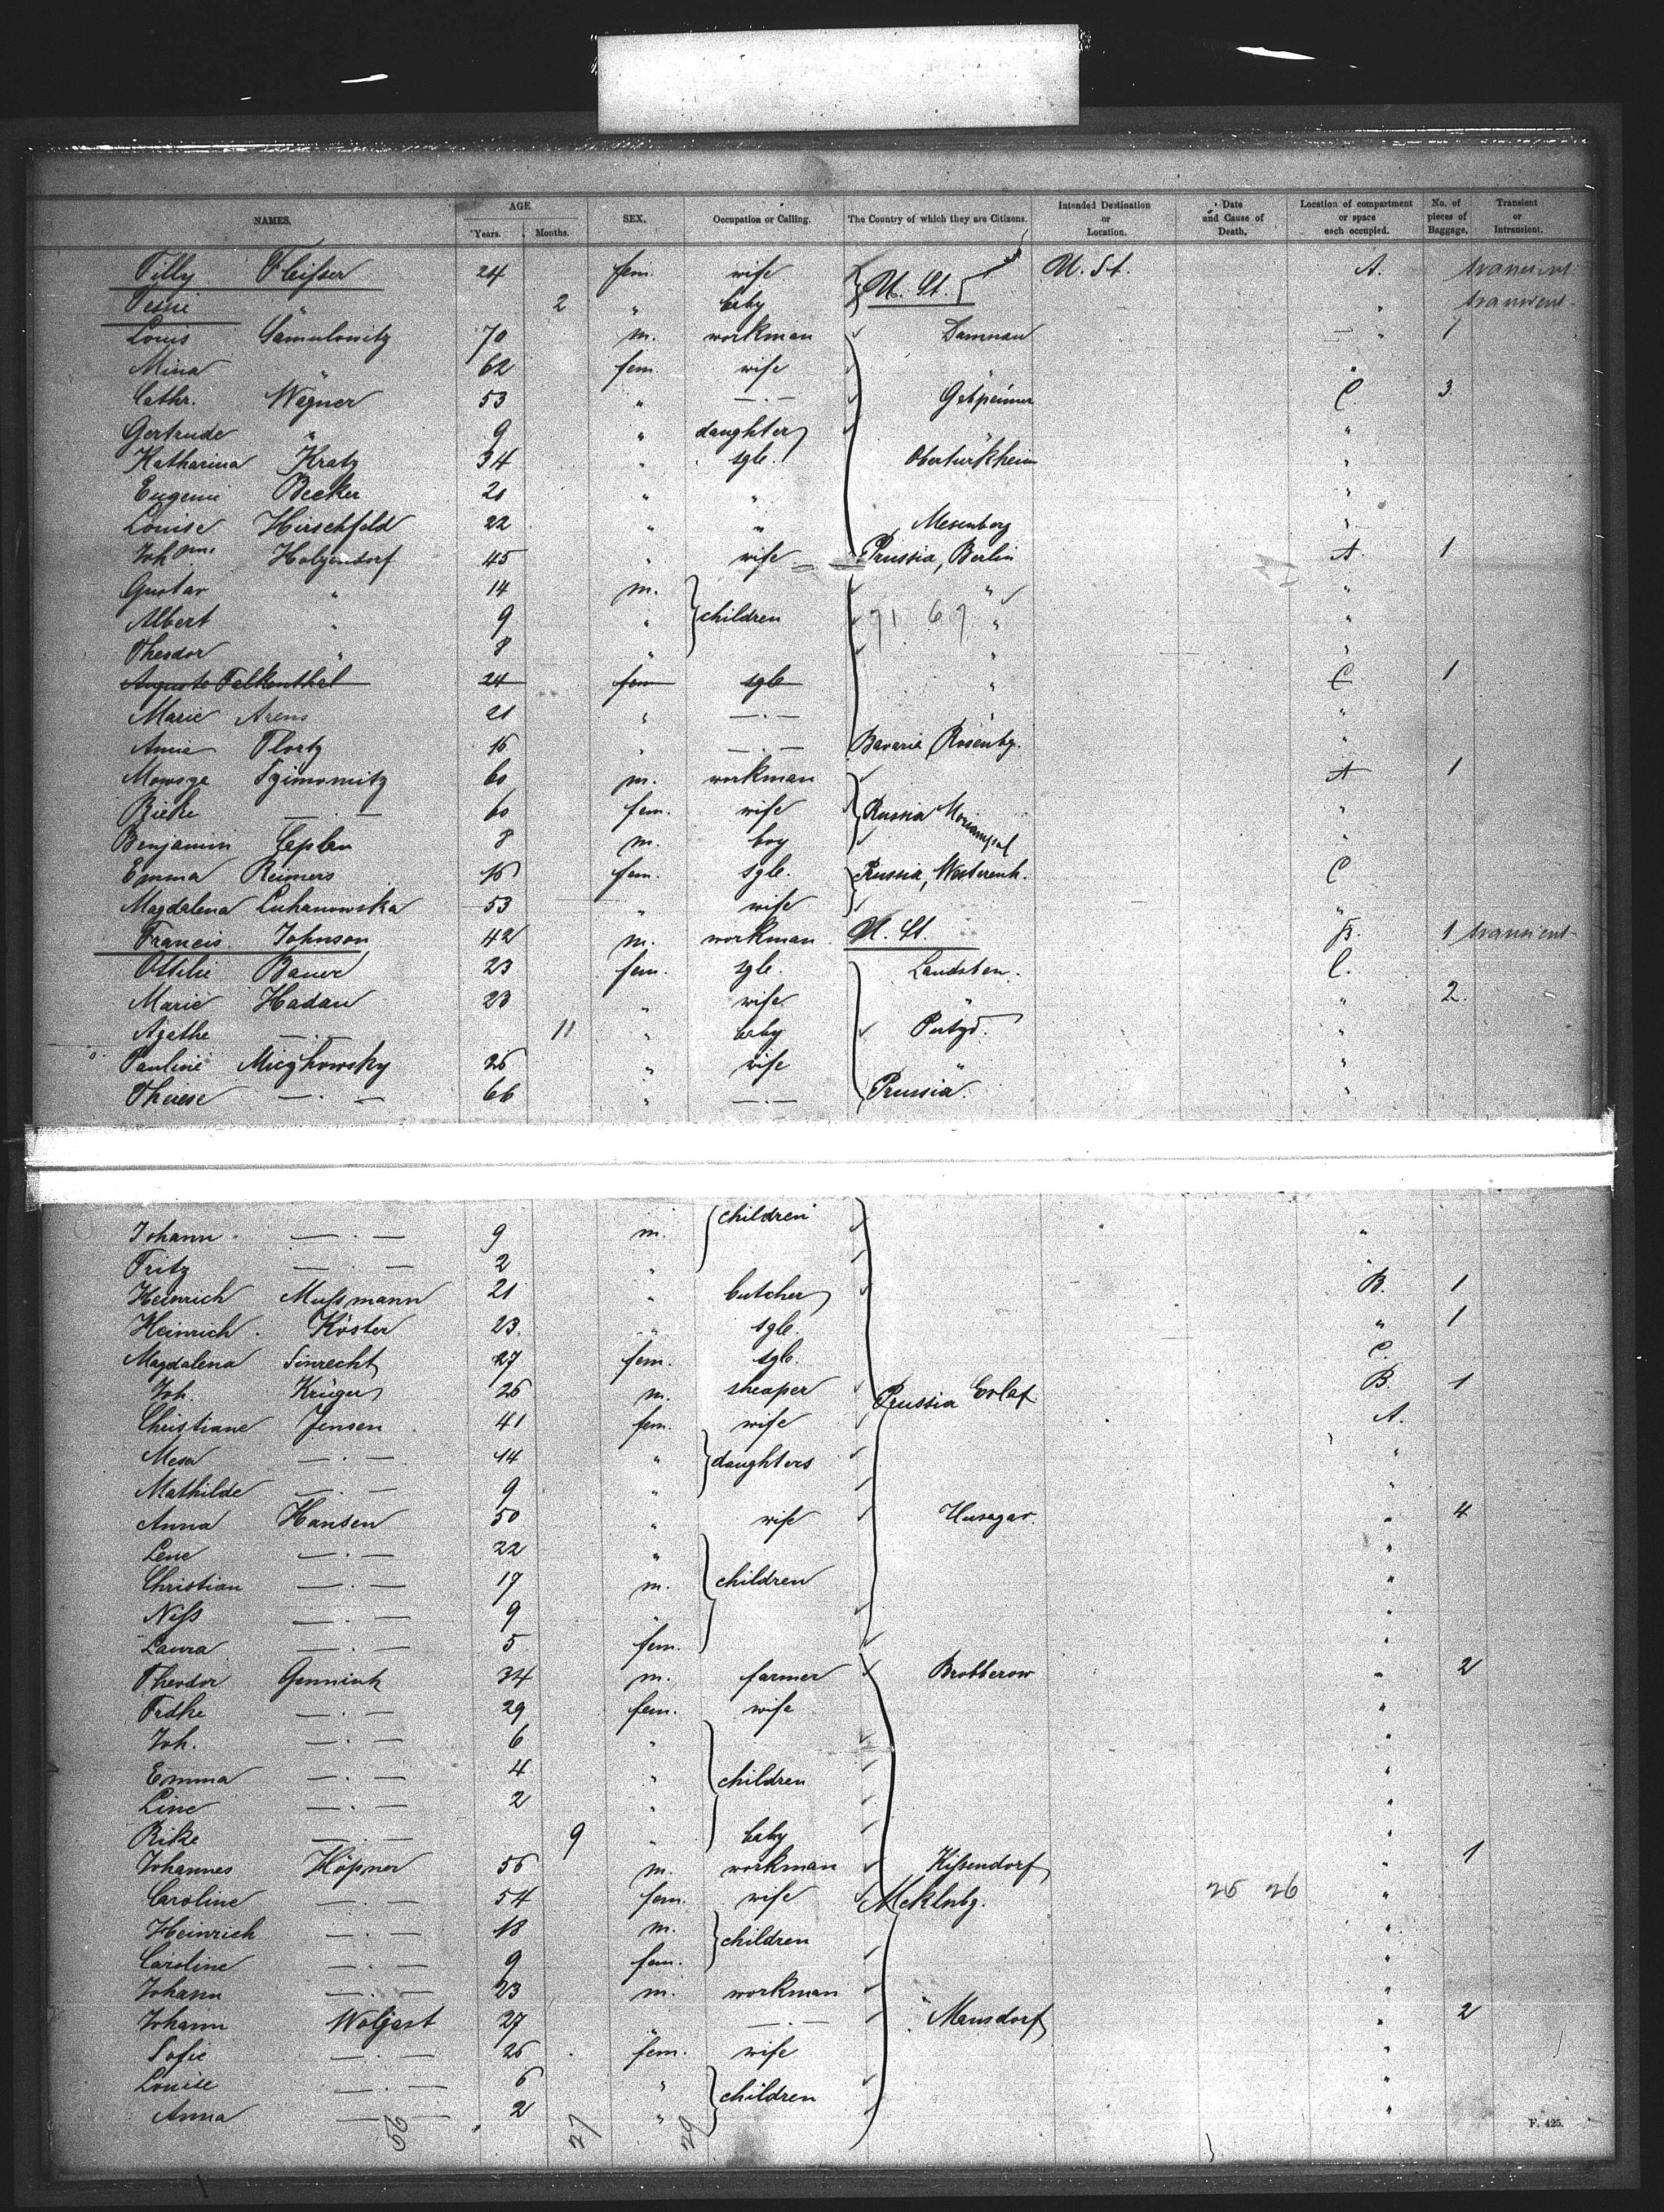 NAMES. AGE. Years. Months. SEX. Occupation or Calling. The Country of which they are Citizens. Intended Destination or Location. Date and Cause of Death. Location of compartment or space each occupied. No. of pieces of Baggage. Transient or Intransient.
Tilly Fleisser 24 fem. wife U. St. U. St. A. transient
Tessie " 2 " baby " transient
Louis Samulowitz 70 m. workman Damnau " 1
Mina " 62 fem. wife "
Cathr. Wegner 53 " —.— C. 3
Gertrude " 9 " daughter "
Katharina Kratz 34 " sgle. Obertürkheim "
Eugenie Becker 21 " " "
Louise Hirschfeld 22 " " Mesenberg "
Joh. Holzendorf 45 " wife Prussia, Berlin A. 1
Gustav " 14 m. " "
Albert " 9 " children 71 67 " "
Theodor " 8 " " "
Auguste Falkenthal 24 fem sgle " C 1
Marie Arens 21 " —.— "
Amie 16 " —.— Bavaria Rosenbg. "
60 m. workman A 1
Rieke —.— 60 fem. wife Russia "
Benjamin 8 m. boy "
Emma Reimers 16 fem. sgle. C
Magdalena Luhanowska 53 " wife "
Francis Johnson 42 m. workman U. St. 1 transient
Ottilie Bauer 23 fem. sgle. C.
Marie Hadau 23 " wife " " 2.
Agathe —.— 11 " baby "
Pauline 26 " wife " "
Therese —.— 66 " —.— Prussia. "
children
Johann —.— 9 m. "
Fritz —.— 2 " "
Heinrich Mussmann 21 " butcher B. 1
Heinrich Köster 23. " sgle. " 1
Magdalena Sinrecht 27 fem. sgle. C.
Joh. Krüger 26 m. sheaper Prussia B. 1
Christiane Jensen 41 fem. wife A.
Mesa —.— 14 " daughters "
Mathilde —.— 9 " "
Anna Hansen 50 " wife Husagar. " 4
Lene —.— 22 " "
Christian —.— 17 m. children "
Niss —.— 9 " "
Laura —.— 5 fem. "
Theodor 34 m. farmer Brobberow " 2
Frdke —.— 29 fem. wife "
Joh. —.— 6 " "
Emma —.— 4 " children "
Line —.— 2 " "
Rike —.— 9 " baby "
Johannes Höpner 56 m. workman Kissendorf " 1
Caroline —.— 54 fem. wife Meklnbg. 26 26 "
Heinrich —.— 18 m. children "
Caroline —.— 9 fem. "
Johann —.— 23 m. workman "
Johann Wolgast 27 " —.— Mansdorf " 2
Sofie —.— 26 fem. wife "
Louise —.— 6 " children "
Anna —.— 2 " "
56 27 29
F. 425.